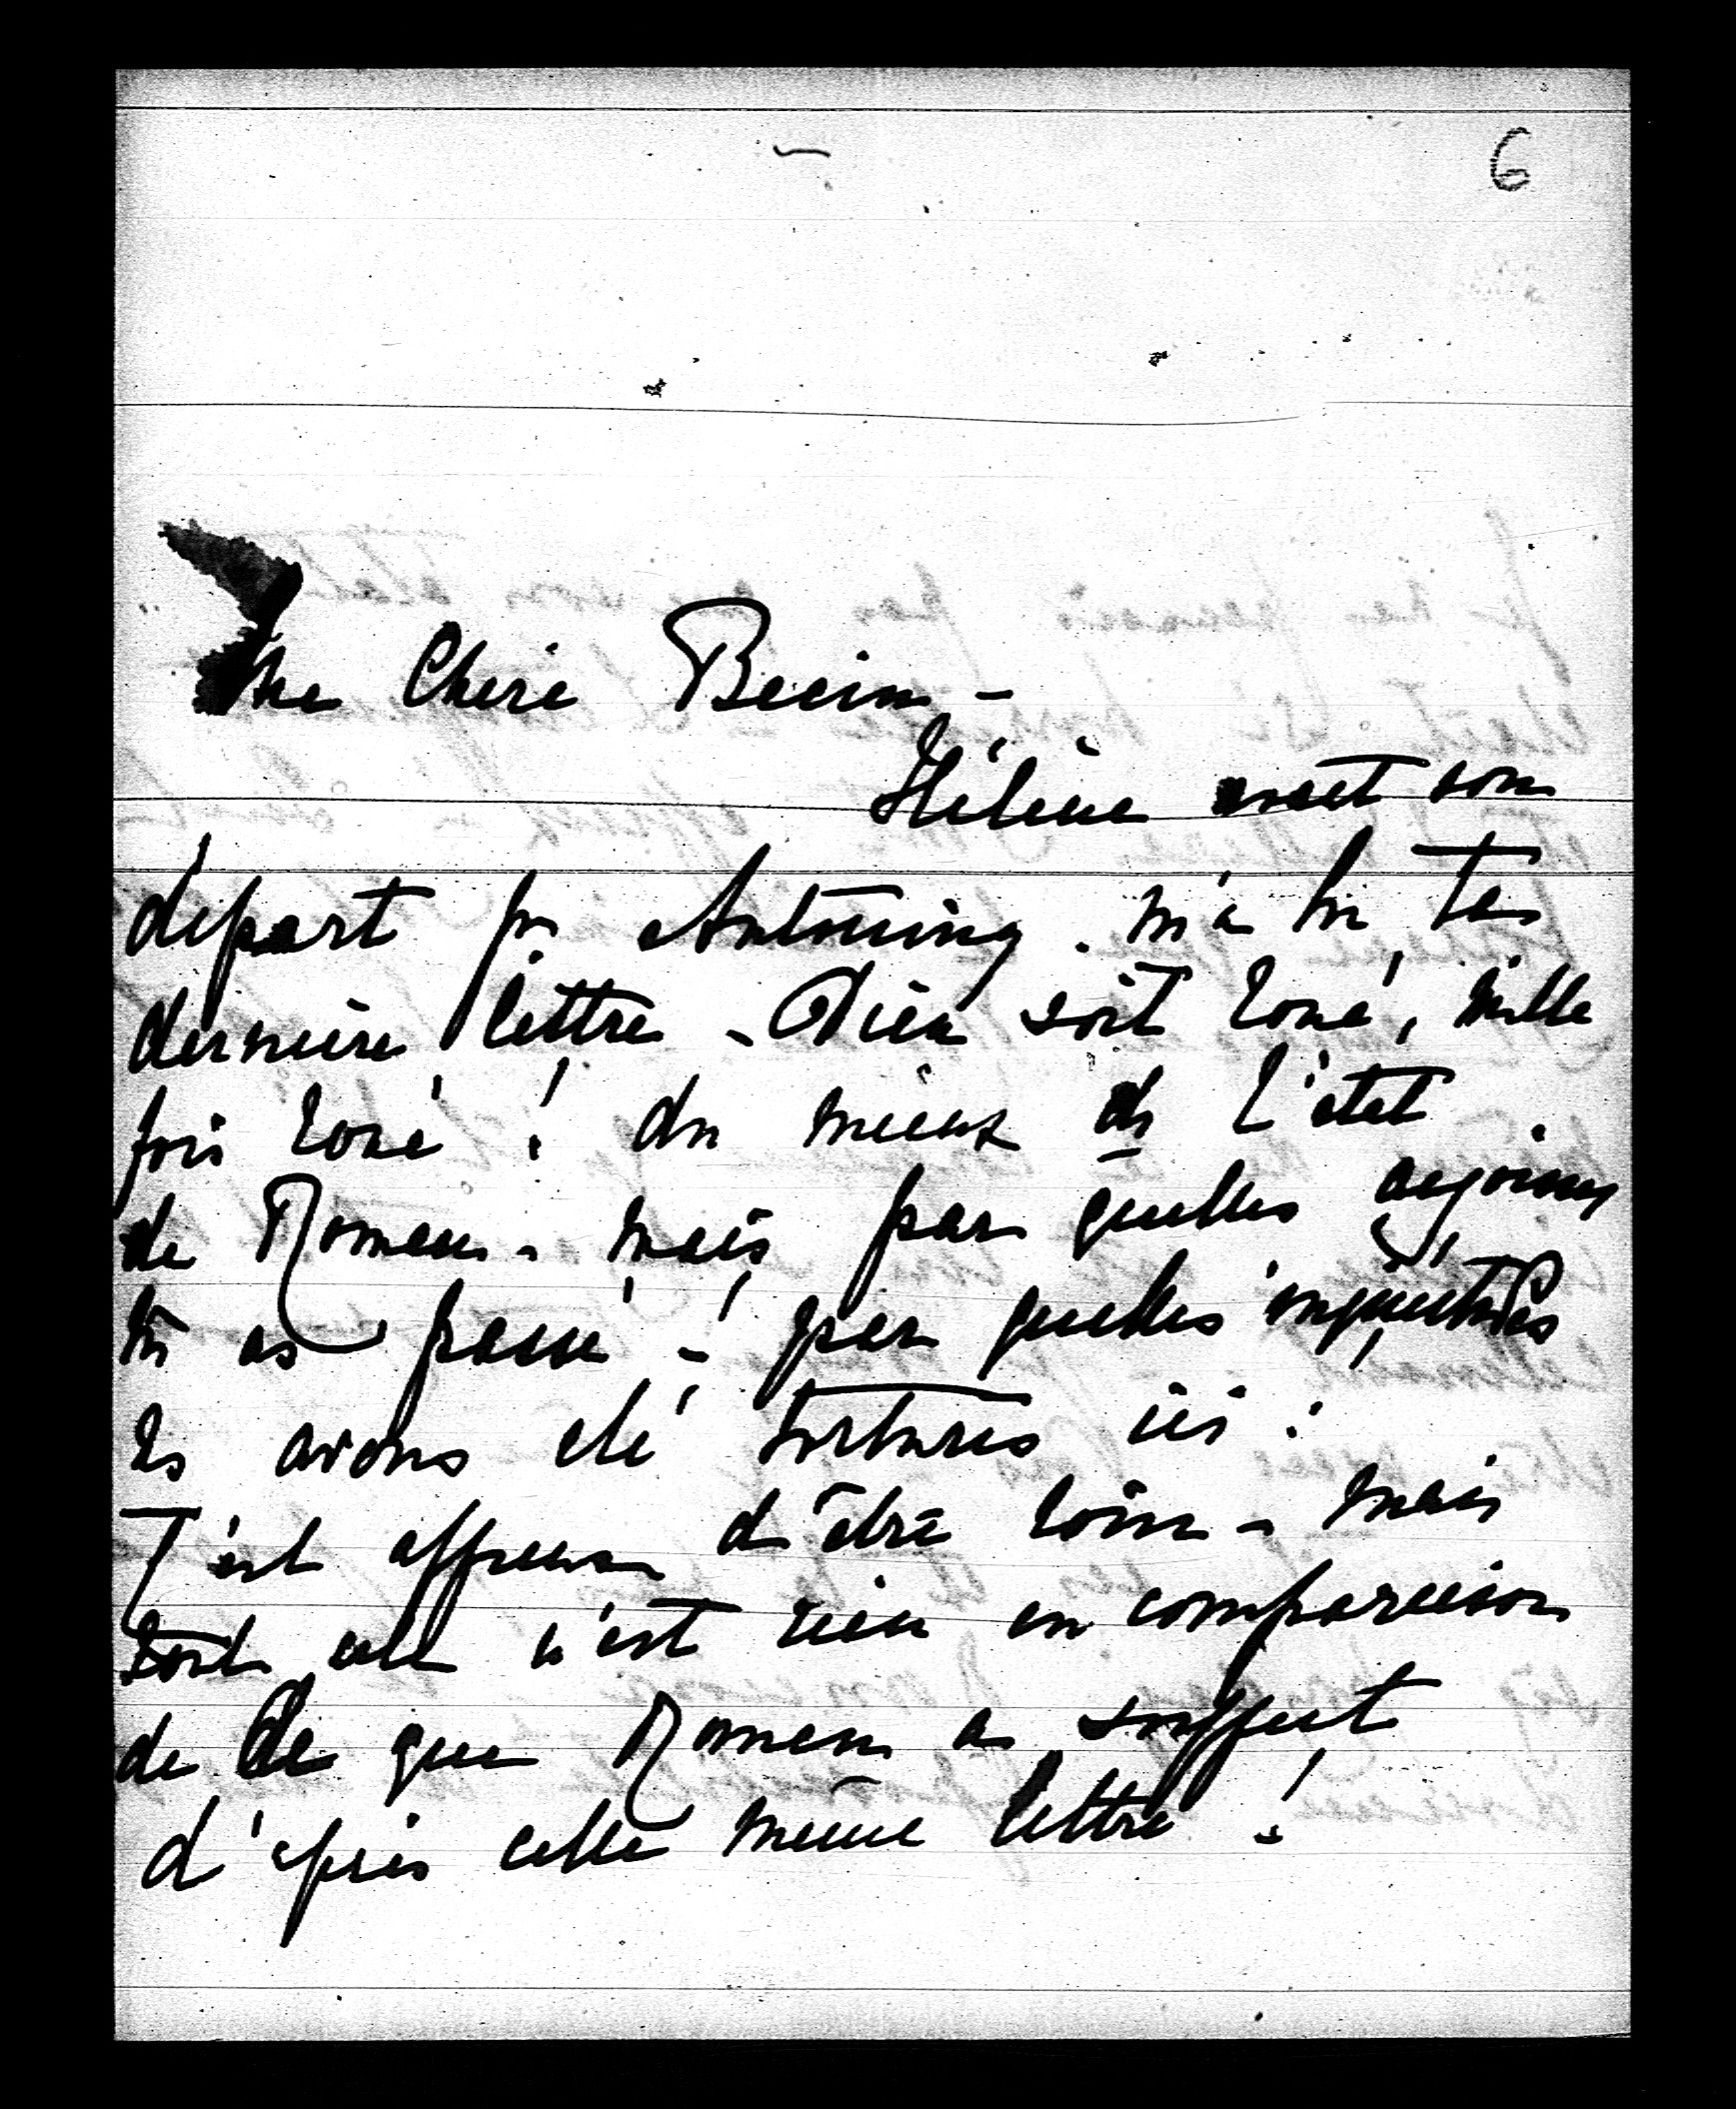 6
Ma Chère Becim -
Hélène avant son
départ pr Antoniny. m'a lu ta
dernière lettre - Dieu soit loué, mille
fois loué! du mieux ds l'état
de Roman - mais par quelles agonies
tu as passé! - par quelles inquiétudes
ns avons été torturés ici!
C'est affreux d'être loin - mais
tout cela n'est rien en comparaison
de ce que Roman a souffert
d'après cette même lettre!